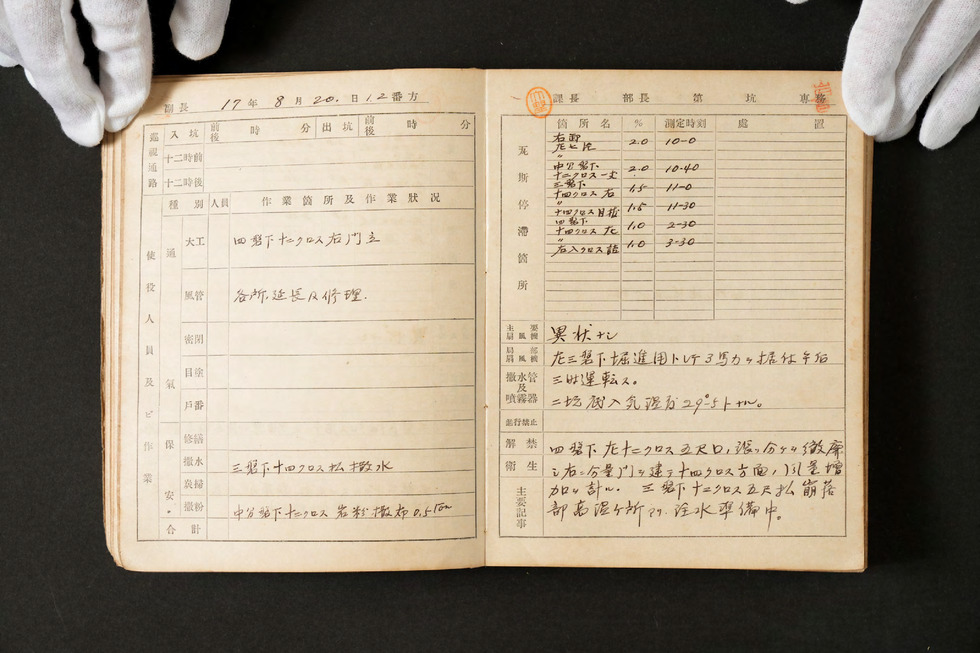 副長 17年8月20.日1.2番方
巡視通路 入坑 前後 時 分 出坑 前後 時 分
十二時前
十二時後
使役人員及ビ作業
種別 人員 作業箇所及作業狀况
通氣
大工 四盤下十二クロス右門立
風管 各所延長及修理.
密閉
目塗
戶番
保安
修繕
撒水 三盤下十四クロス払撒水
炭掃
撒粉 中分盤下十二クロス岩粉撒布0.5Ton
合計
課長 部長 第 坑 専務
瓦斯停滯箇所
箇所名 % 測定時刻 處置
右卸
左七片 2.0 10-0
〃
中分盤下
十二クロス 2.0 10-40
三盤下
十四クロス右 1.5 11-0
〃
十四クロス目抜 1.5 11-30
四盤下
十四クロス左 1.0 2-30
〃
右入クロス詰 1.0 3-30
主要扇風機 異状ナシ
局部扇風機 左三盤下堀進用トシテ3馬力ヲ据付午后
撒水管及噴霧器 三時運転ス。
二坑底入気温度29°5トナル。
進行禁止
解禁 四盤下左十二クロス五尺口
衛生 右ニ分量門ヲ建テ十四クロス方面ノ風量増
主要記事 加ヲ計ル. 三盤下十二クロス五尺払崩落
部高温ヶ所 注水準備中。